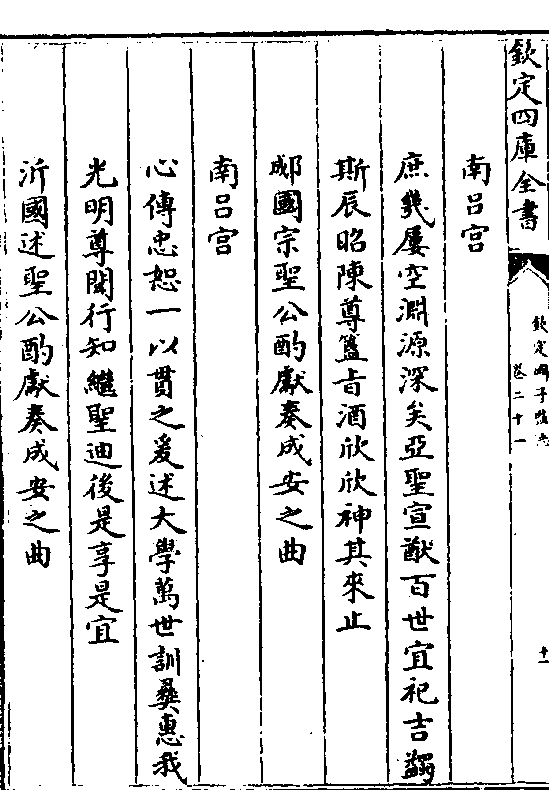 欽定四庫全書
欽定國子監志
卷二十一
十一
南呂宮
庶幾屢空淵源深矣亞聖宣猷百世宜祀吉蠲
斯辰昭陳尊簋旨酒欣欣神其來止
郕國宗聖公酌獻奏成安之曲
南呂宮
心傳忠恕一以貫之爰述大學萬世訓彝惠我
光明尊聞行知繼聖迪後是享是宜
沂國述聖公酌獻奏成安之曲